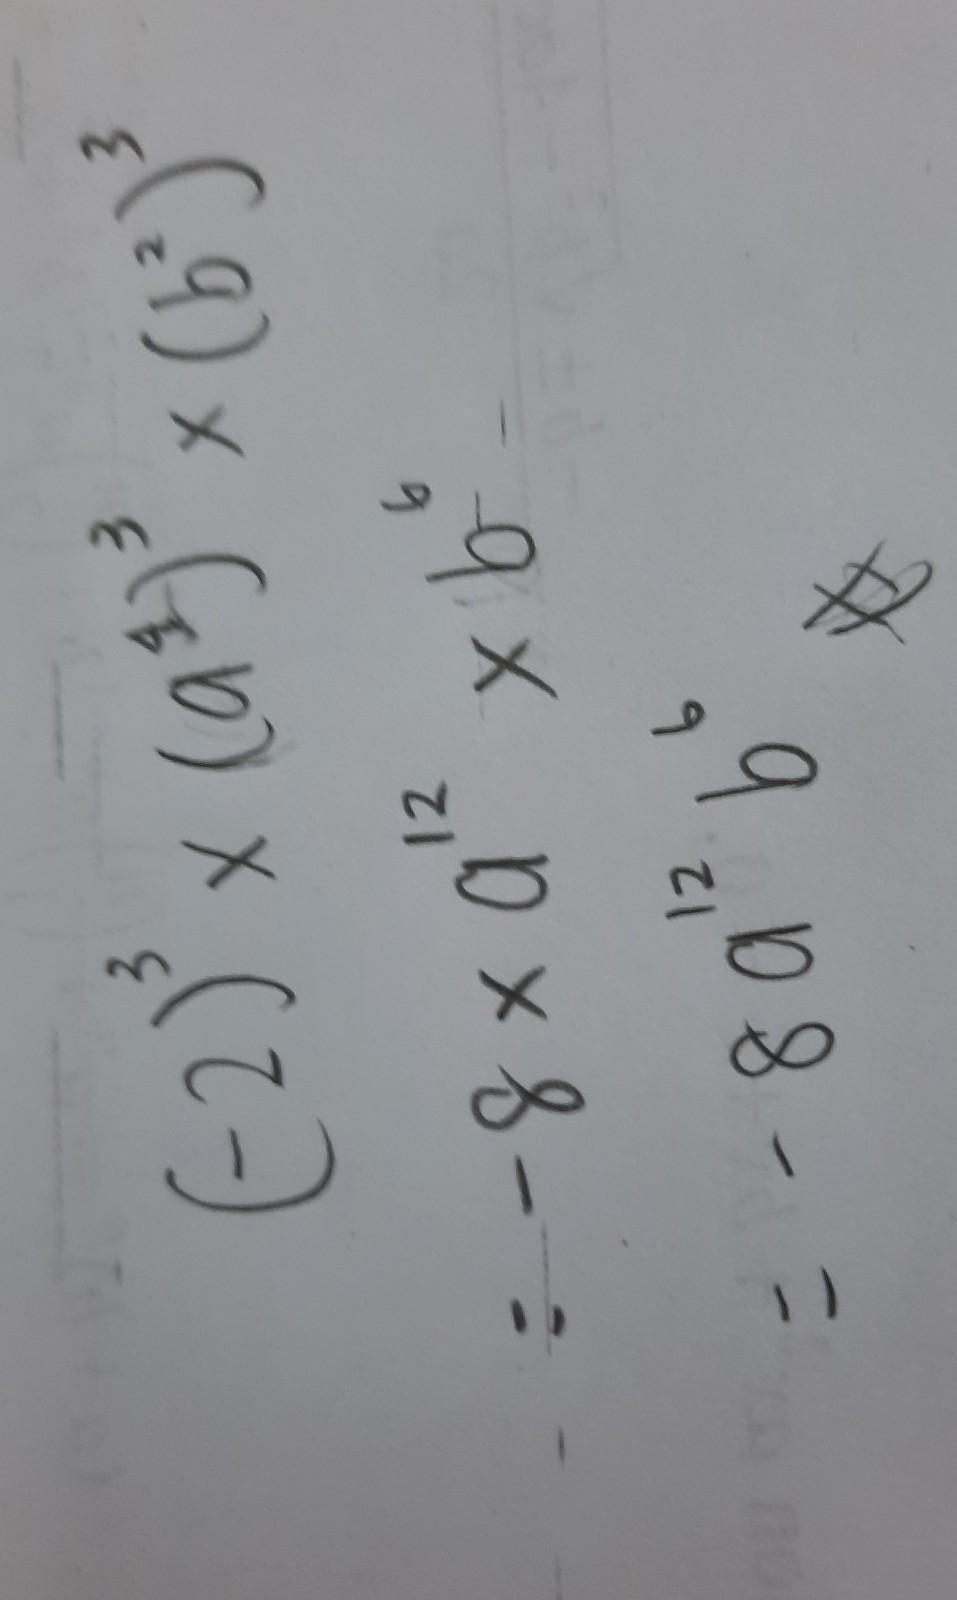 (-2)³ × (a⁴)³ × (b²)³
= - 8 × a¹² × b⁶
= - 8 a¹² b⁶